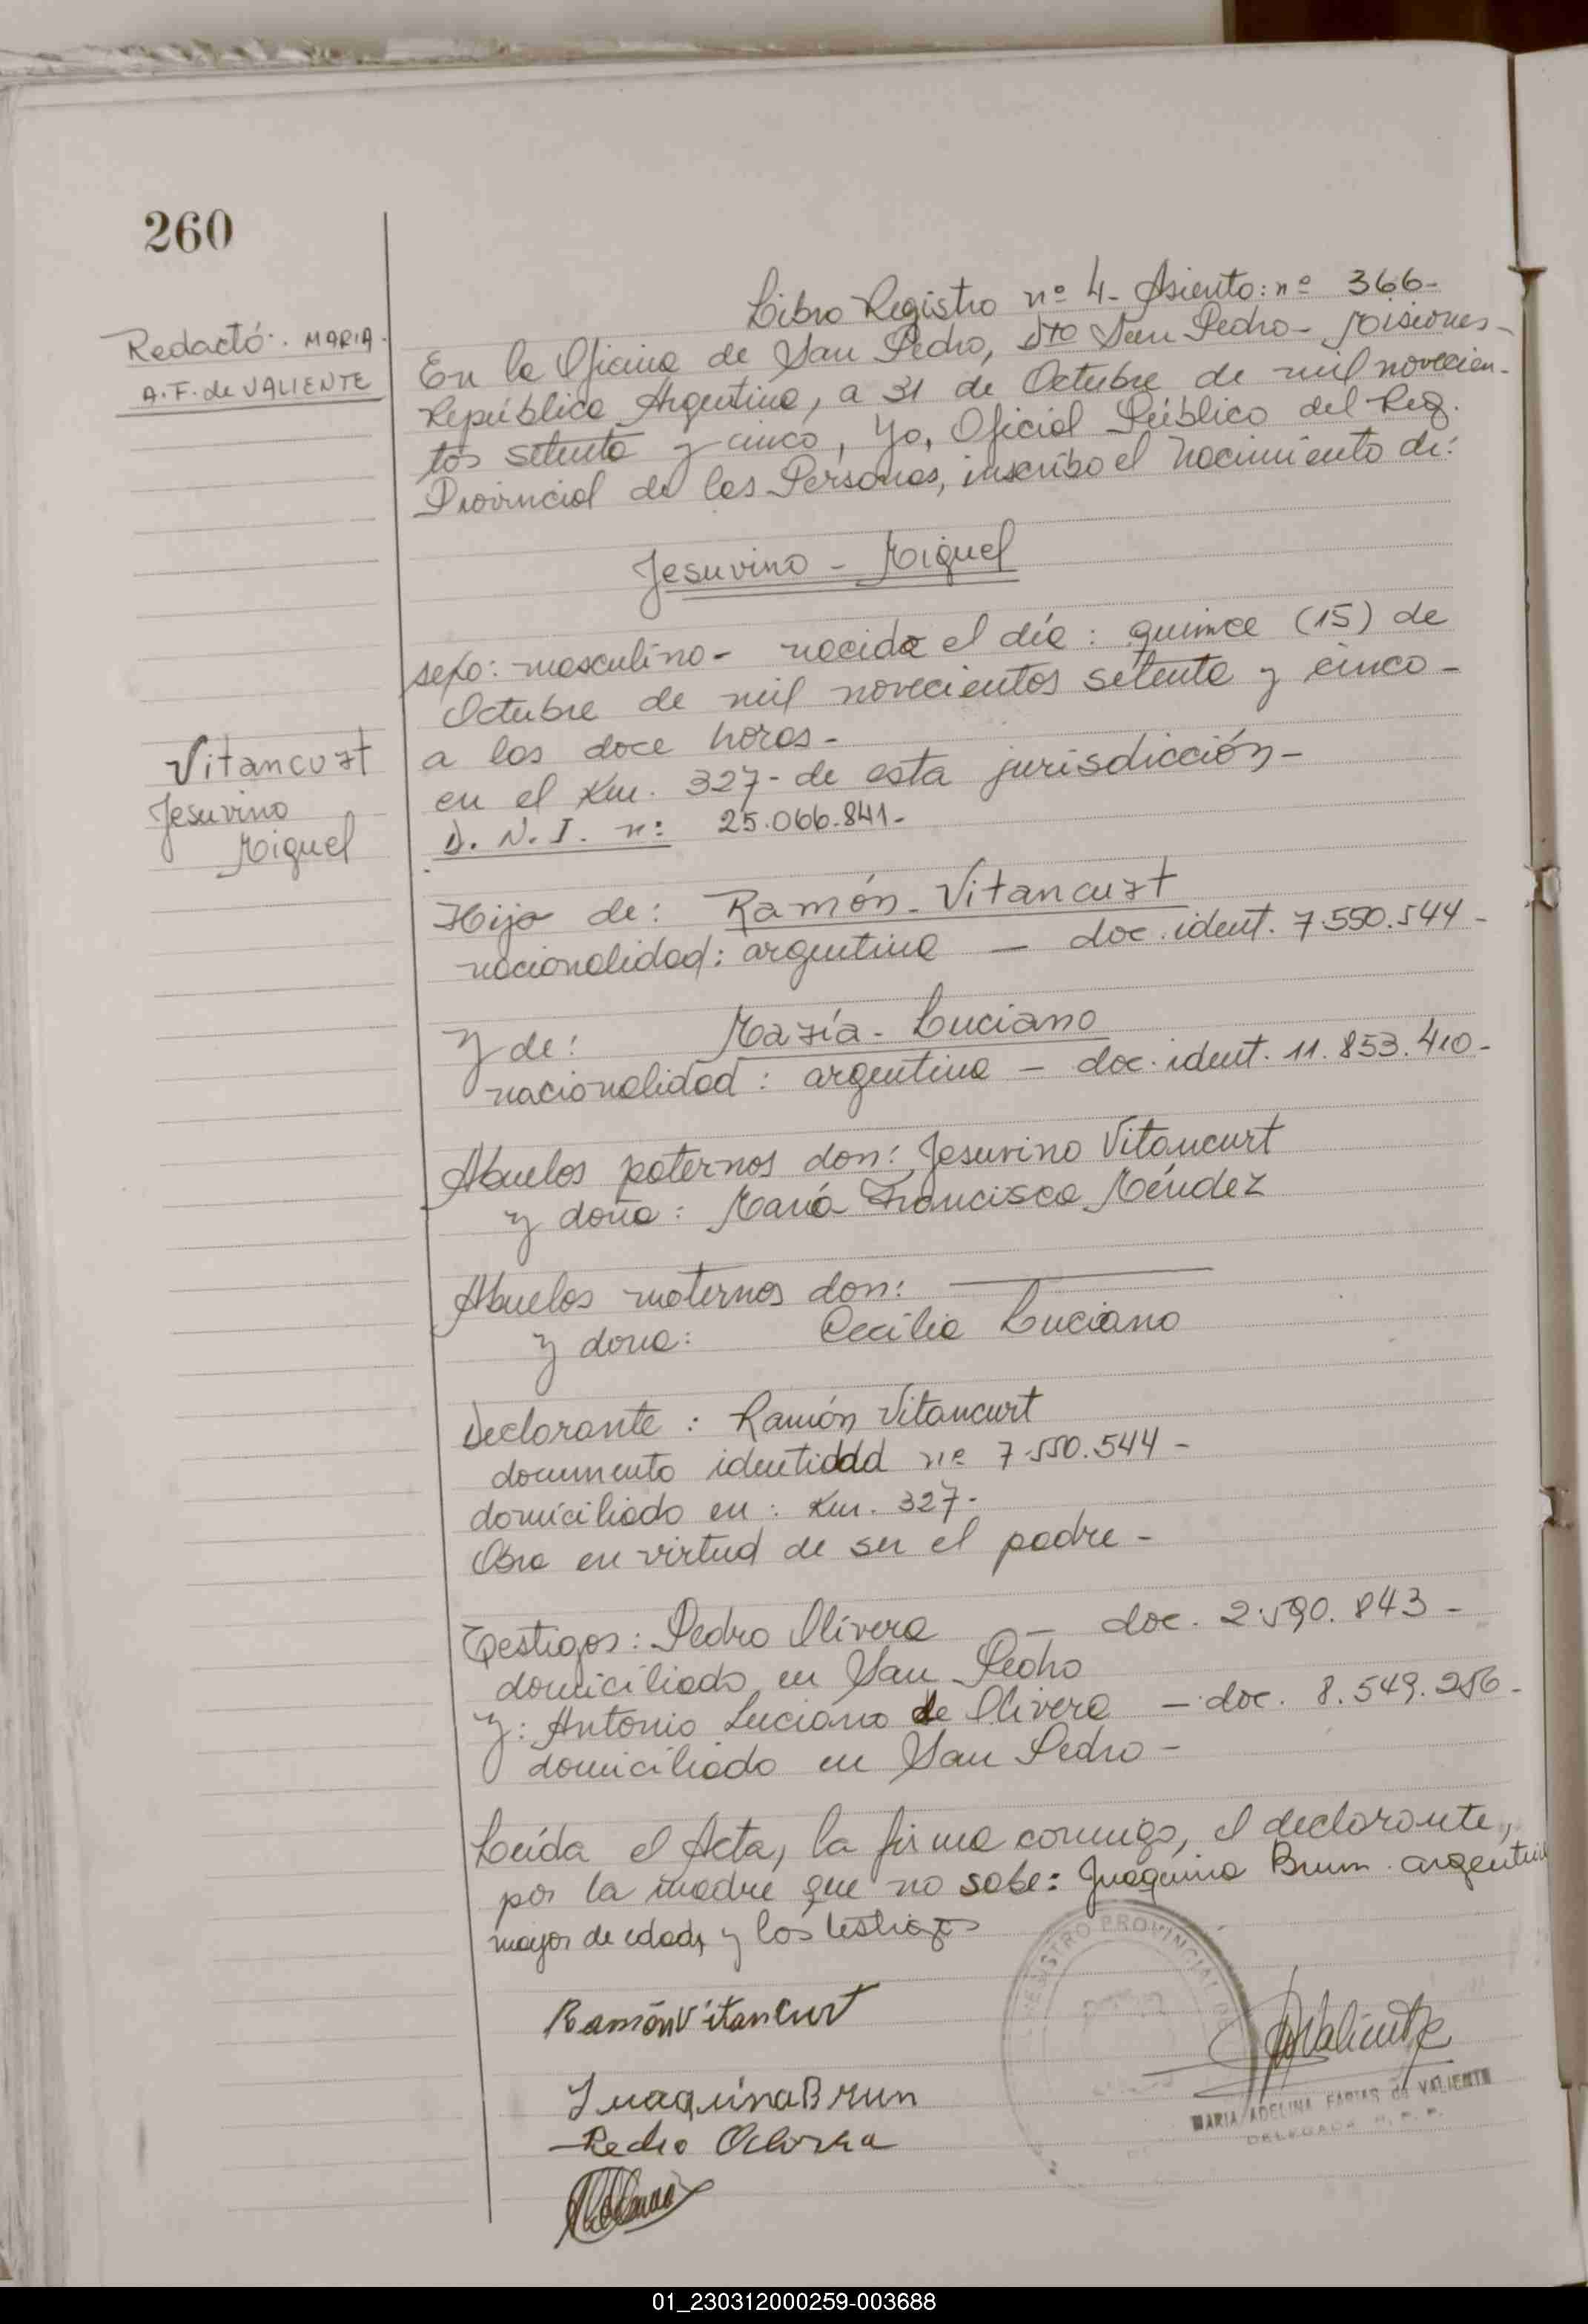 260
Redactó: MARIA
A. F. de VALIENTE
Libro Registro nº 4- Asiento: nº 366-
En la Oficina de San Pedro, Dto San Pedro- Misiones-
República Argentina, a 31 de Octubre de mil novecien-
tos setenta y cinco, Yo, Oficial Público del Reg.
Provincial de las Personas, inscribo el nacimiento de:
Jesuvino - Miguel
sexo: masculino- nacido el día: quince (15) de
Octubre de mil novecientos setenta y cinco-
a las doce horas-
en el Km. 327- de esta jurisdicción-
D. N. I. n: 25.066.841-
Vitancurt
Jesuvino
Miguel
Hijo de: Ramón - Vitancurt
nacionalidad: argentina — doc. ident. 7.550.544-
Y de: María - Luciano
nacionalidad: argentina — doc. ident. 11.853.410-
Abuelos paternos don: Jesuvino Vitancurt
y doña: María Francisca Méndez
Abuelos maternos don: ———
y doña: Cecilia Luciano
Declarante: Ramón Vitancurt
documento identidad nº 7.550.544-
domiciliado en: Km. 327-
Obra en virtud de ser el padre-
Testigos: Pedro Olivera — doc. 2.590.843-
domiciliado en San Pedro
y: Antonio Luciano de Olivera — doc. 8.549.256-
domiciliado en San Pedro-
Leída el Acta, la firma conmigo, el declarante,
por la madre que no sabe: Juaquina Brum argentina
mayor de edad, y los testigos
Ramón Vitancurt
Juaquina Brun
Pedro
REGISTRO PROVINCIAL DE
Valiente
MARIA ADELINA FARIAS de VALIENTE
DELEGADA R. P. P.
01_230312000259-003688